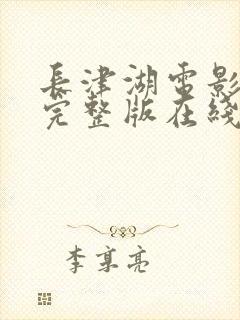 長津湖電影
完整版在綫
李享亮